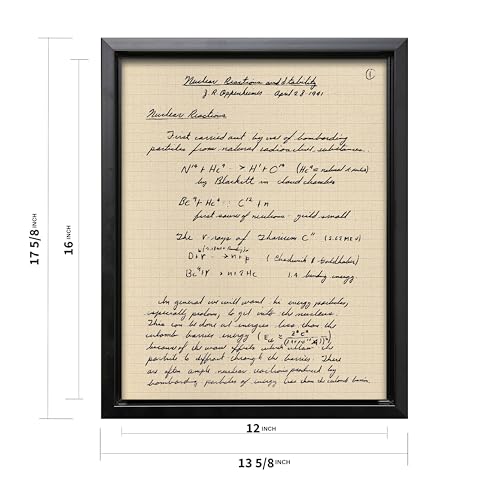 Nuclear Reactions and Stability
1
J. R. Oppenheimer April 28 1941
Nuclear Reactions
First carried out by use of bombarding
particles from natural radioactive substances.
N¹⁴ + He⁴ → H¹ + O¹⁷ (He⁴ = natural α rules)
by Blackett in cloud chamber
Be⁹ + He⁴ : C¹² + n
first source of neutrons - yield small
The γ rays of Thorium C" (2.62 MEV)
D + γ → n + p (Chadwick & Goldhaber)
Be⁹ + γ n + 2 He 1.4 binding energy
In general we will want hi energy particles,
especially protons, to get into the nucleus.
This can be done at energies less than the
coulomb barrier energy
because of the wave effects which allow the
particle to diffract through the barrier. There
are often ample nuclear reactions produced by
bombarding particles of energy less than the coulomb barrier.
17 5/8 INCH
16 INCH
12 INCH
13 5/8 INCH